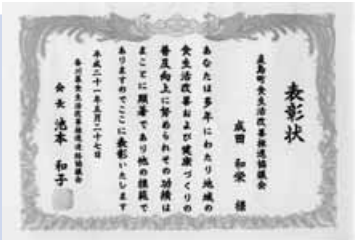 表彰状
直島町食生活改善推進協議会
成田 和栄 様
あなたは多年にわたり地域の
食生活改善および健康づくりの
普及向上に努められその功績は
まことに顕著であり他の模範で
ありますのでここに表彰いたします
平成二十一年五月二十七日
香川県食生活改善推進連絡協議会
会長 池本 和子